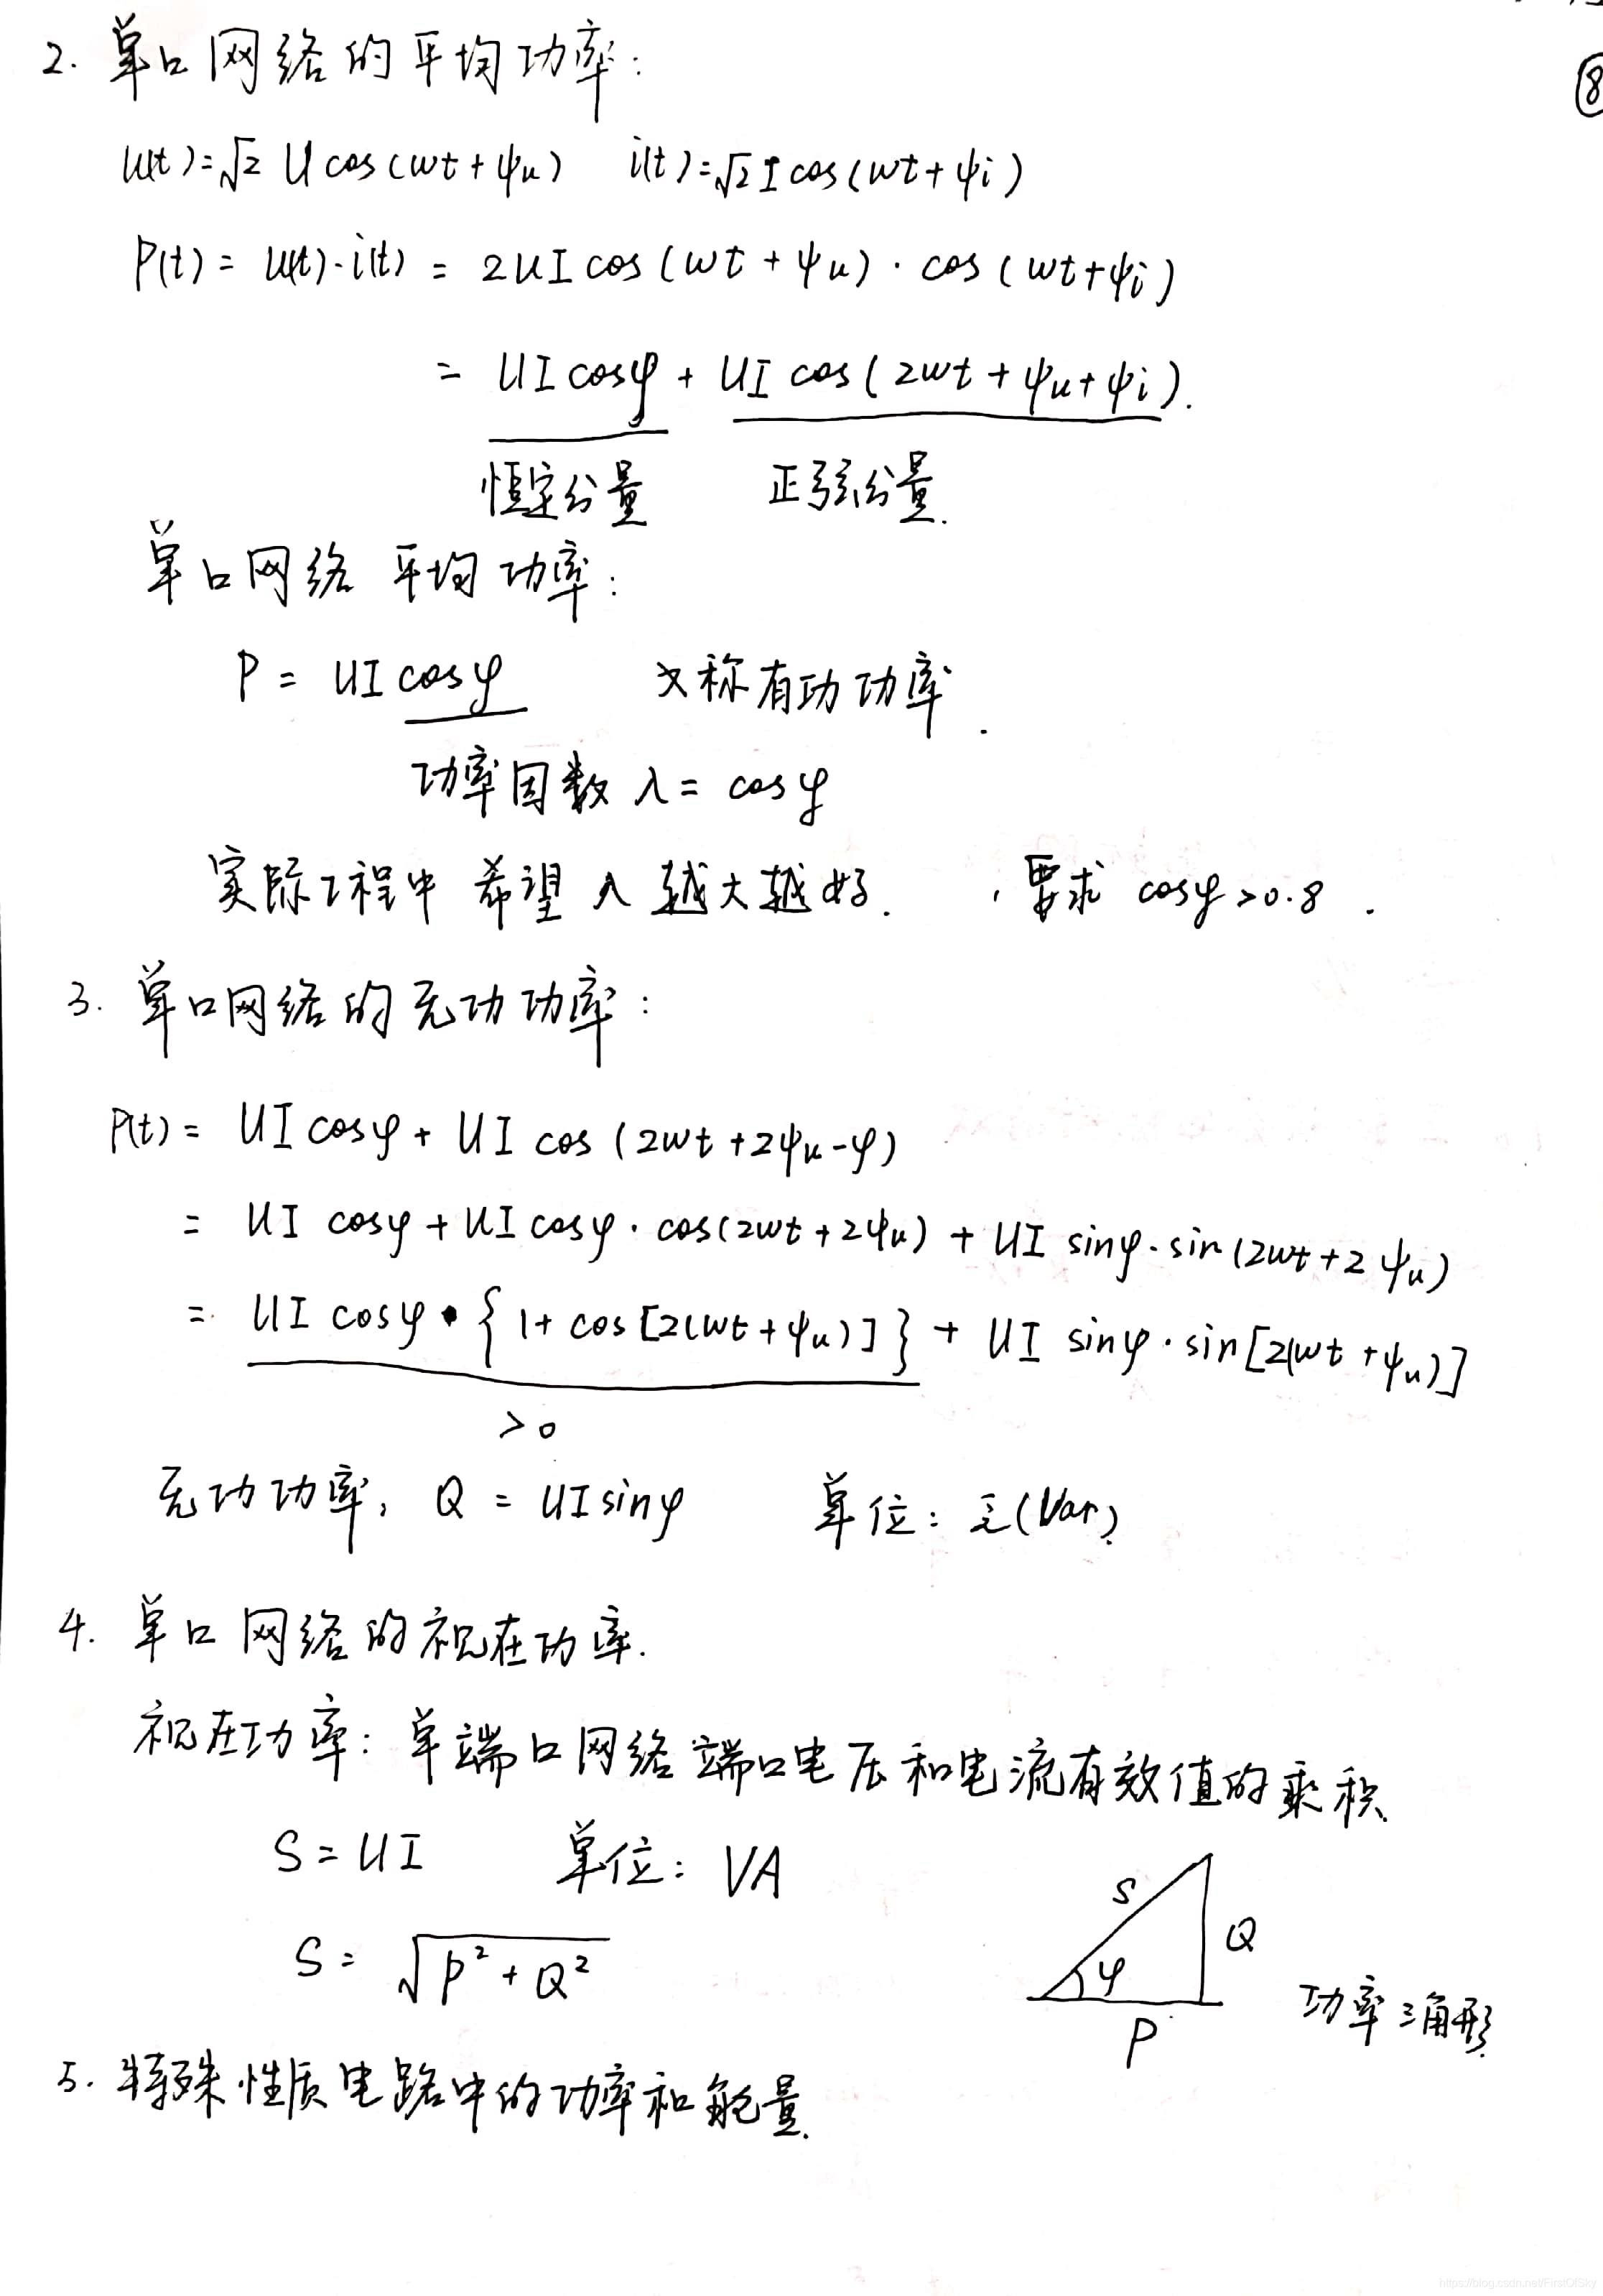 ⑧
2. 单口网络的平均功率:
u(t)=√2 U cos(ωt+ψu)   i(t)=√2 I cos(ωt+ψi)
P(t) = u(t)·i(t) = 2UI cos(ωt+ψu)·cos(ωt+ψi)
= UI cosφ + UI cos(2ωt+ψu+ψi).
恒定分量   正弦分量.
单口网络 平均功率:
P = UI cosφ   又称有功功率.
功率因数 λ = cosφ
实际工程中 希望 λ 越大越好. , 要求 cosφ>0.8 .
3. 单口网络的无功功率:
P(t) = UI cosφ + UI cos(2ωt+2ψu-φ)
= UI cosφ + UI cosφ·cos(2ωt+2ψu) + UI sinφ·sin(2ωt+2ψu)
= UI cosφ·{1+cos[2(ωt+ψu)]} + UI sinφ·sin[2(ωt+ψu)]
>0
无功功率, Q = UI sinφ   单位: 乏(Var)
4. 单口网络的视在功率.
视在功率: 单端口网络端口电压和电流有效值的乘积.
S = UI   单位: VA
S = √(P²+Q²)
S
Q
φ
P
功率三角形
5. 特殊性质电路中的功率和能量.
https://blog.csdn.net/FirstOfSky